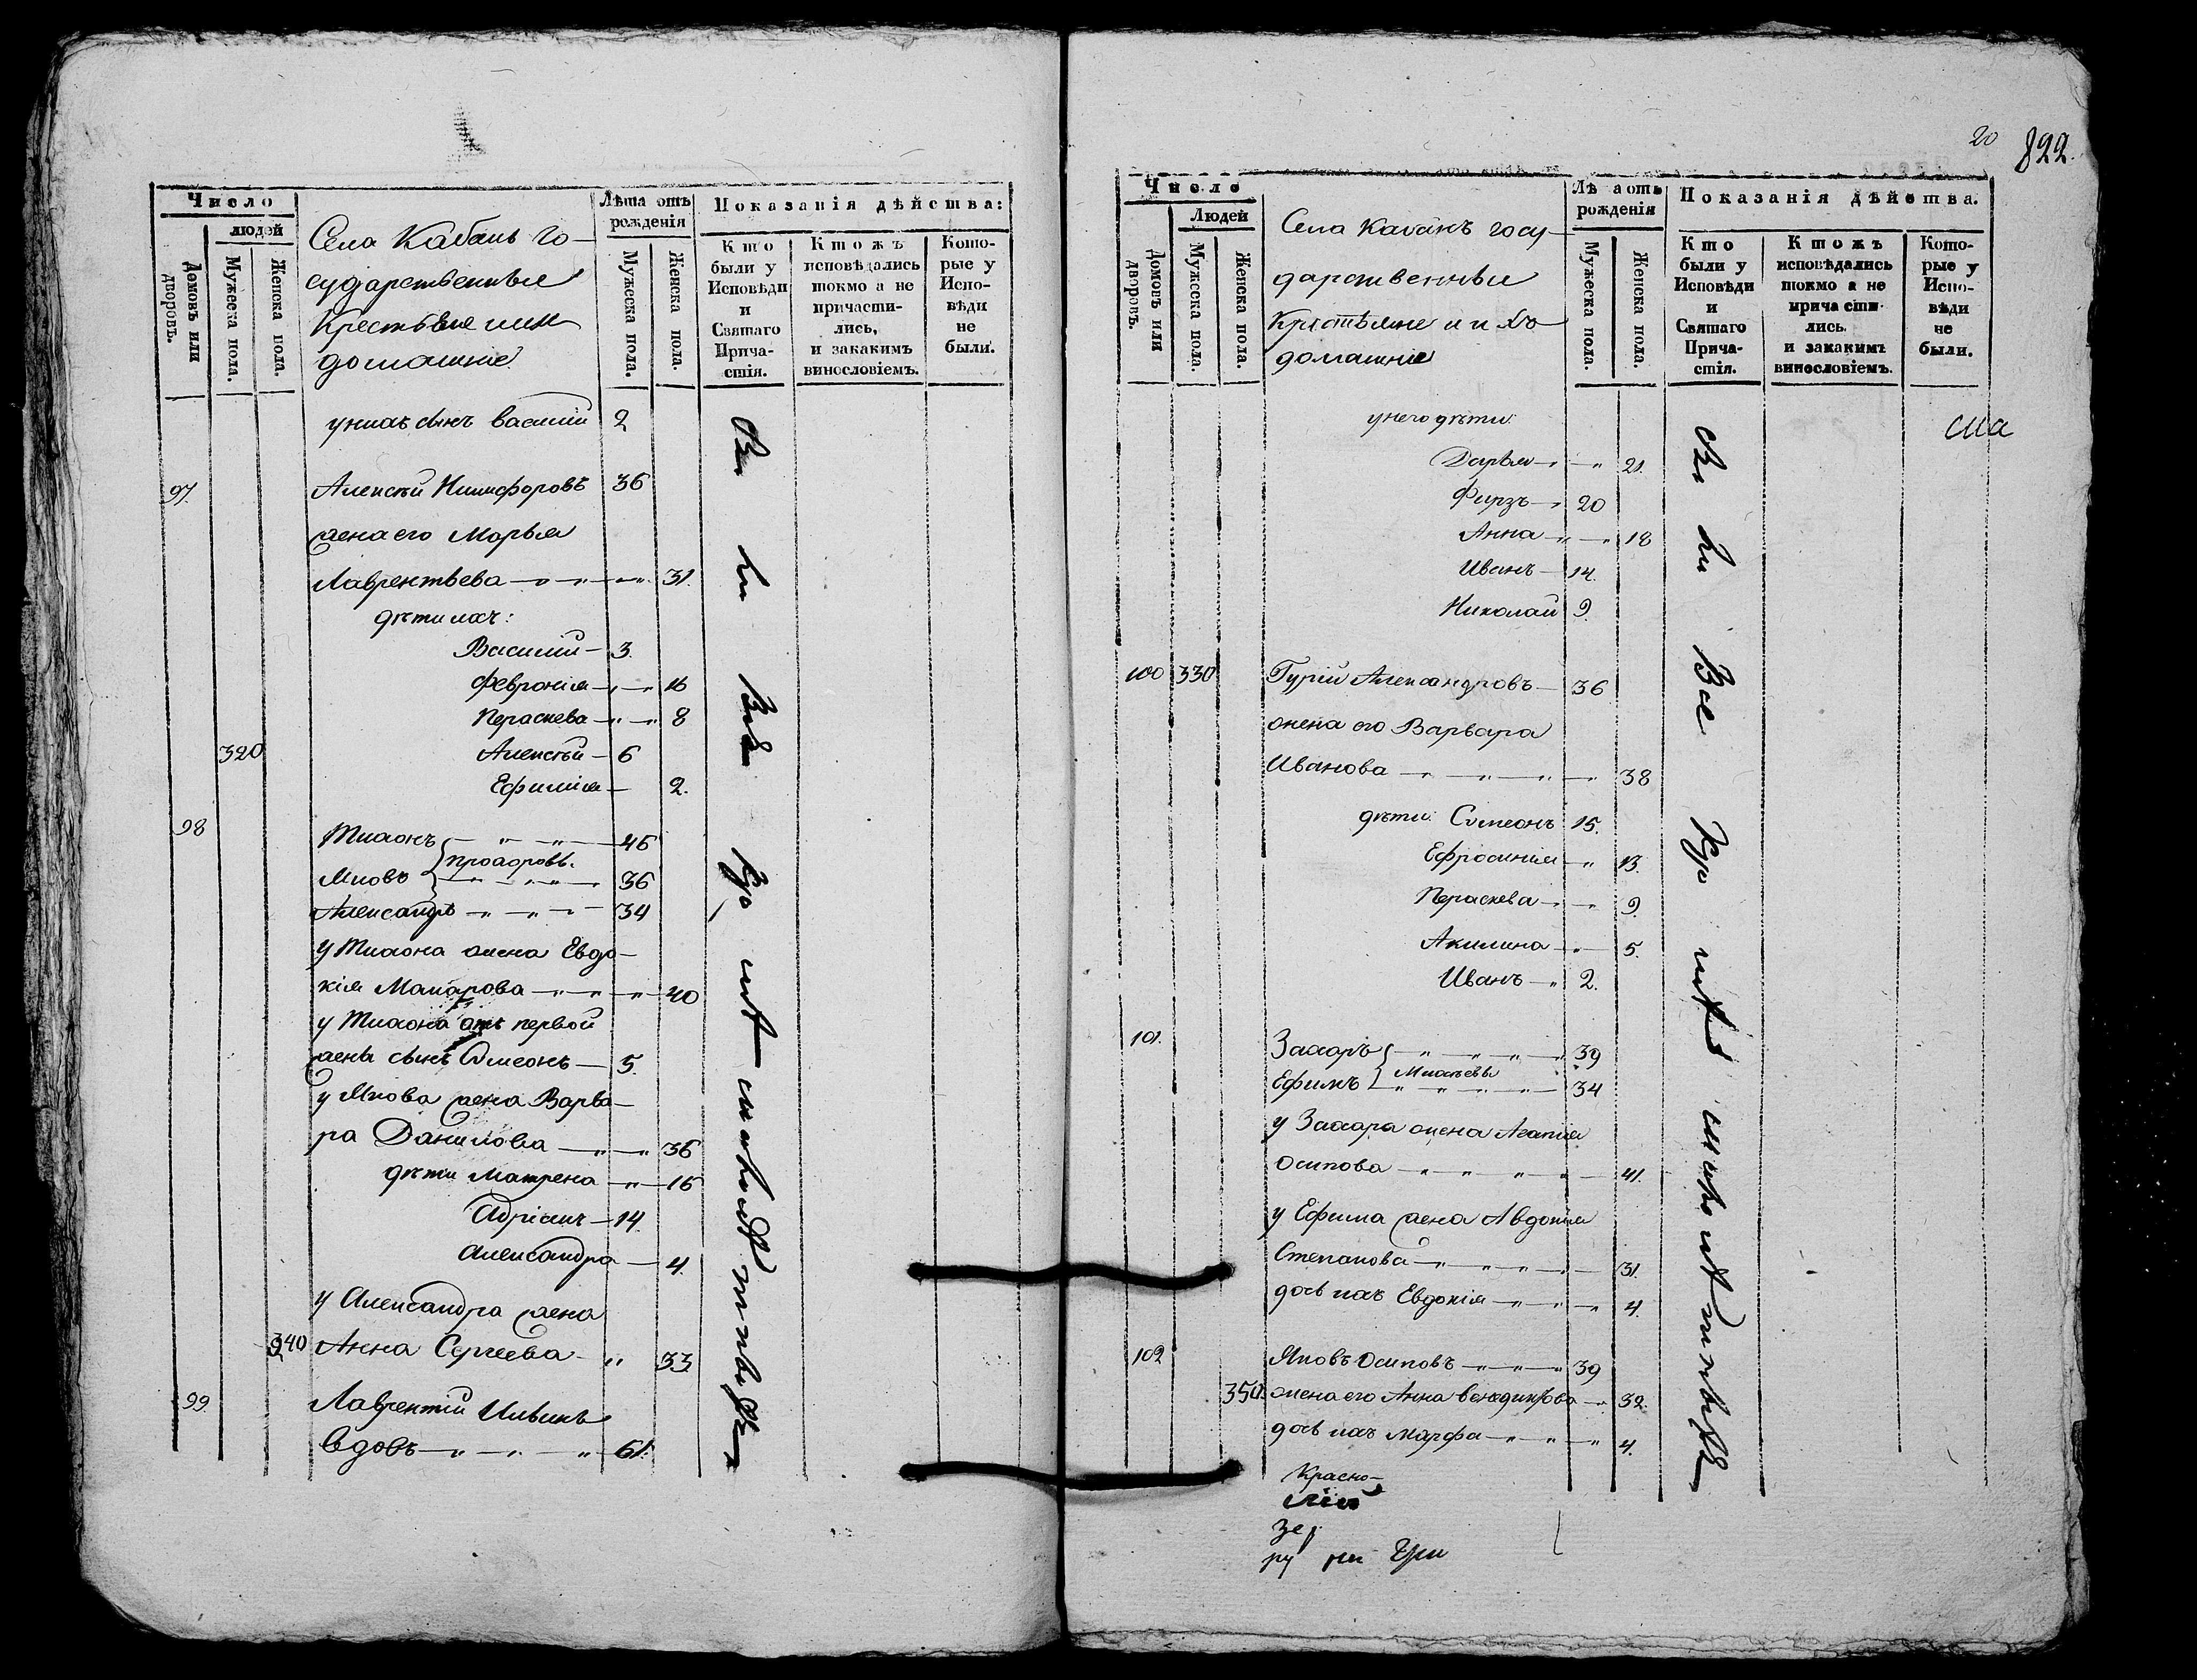 Число
людей
Домовъ или дворовъ.
Мужеска пола.
Женска пола.
Села Кабанъ го-
сударственныя
Крестьяне и ихъ
домашніе
Лѣта отъ рожденія
Мужеска пола.
Женска пола.
Показанія дѣйства:
Кто были у Исповѣди и Святаго Причастія.
Ктожъ исповѣдались токмо а не причастились, и закакимъ винословіемъ.
Которые у Исповѣди не были.
у нихъ сынъ Василій 2
97. Алексѣй Никифоровъ 36
жена его Марья
Лаврентьева 31.
дѣти ихъ:
Василій 3.
Февронія 16
Пераскева 8
320 Алексѣй 6
Ефимія 2.
98 Тихонъ 46
Прохоровы.
Яковъ 36
Александръ 34
у Тихона жена Евдо-
кія Макарова 40
у Тихона отъ первой
жены сынъ Симеонъ 5.
у Якова жена Варва-
ра Данилова 36
дѣти Матрена 16
Адріанъ 14.
Александра 4.
у Александра жена
340 Анна Сергеева 33
99. Лаврентій Ильинъ
вдовъ 61.
20 822.
Число
Людей
Домовъ или дворовъ.
Мужеска пола.
Женска пола.
Села Кабанъ госу-
дарственныя
Крестьяне и ихъ
домашніе
Лѣ а отъ рожденія
Мужеска пола.
Женска пола.
Показанія дѣйства.
Кто были у Исповѣди и Святаго Причастія.
Ктожъ исповѣдались токмо а не причастились. и закакимъ винословіемъ.
Которые у Исповѣди не были.
у него дѣти:
Дарья 21.
Фирзъ 20
Анна 18
Иванъ 14.
Николай 9.
100 330 Гурій Александровъ 36
жена его Варвара
Иванова 38
дѣти: Симеонъ 15.
Ефросинія 13.
Пераскева 9.
Акилина 5.
Иванъ 2.
101. Захаръ 39
Ефимъ 34
у Захара жена Агапія
Осипова 41.
у Ефима жена Авдокія
Степанова 31.
дочь ихъ Евдокія 4.
102 Яковъ Осиповъ 39
350. жена его Анна Венедиктова 32.
дочь ихъ Марфа 4.
Красно-